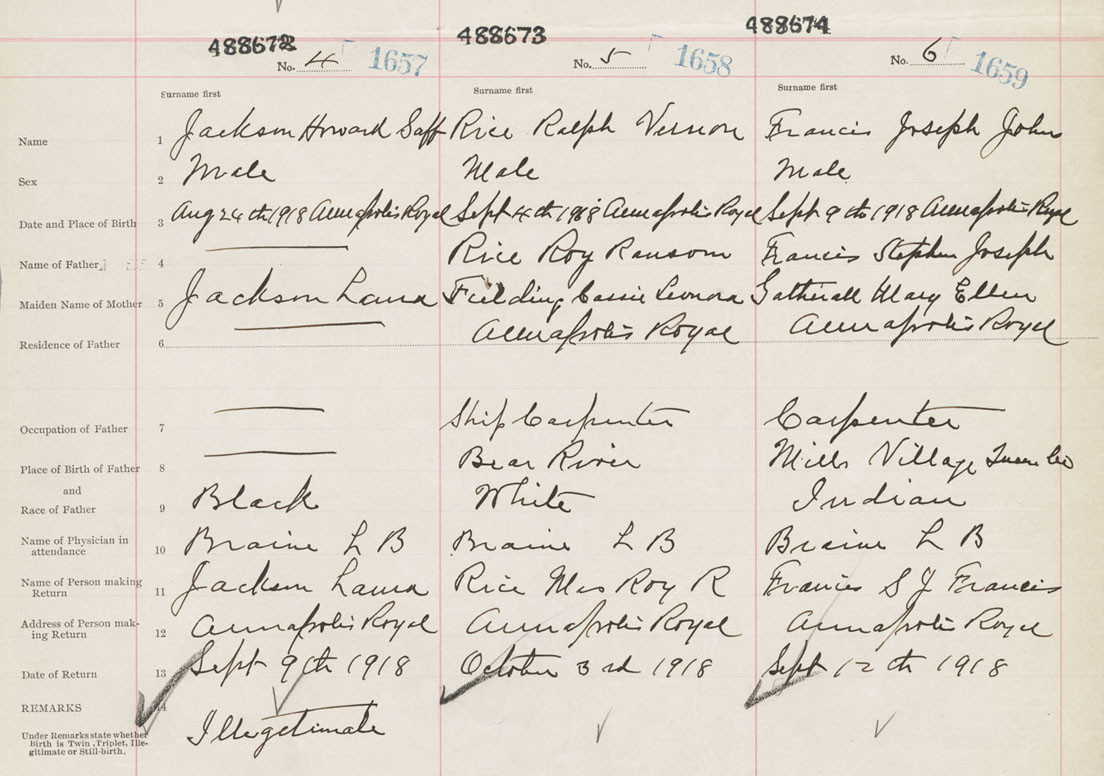 488672 488673 488674
No. 4 1657 No. 5 1658 No. 6 1659
Surname first Surname first Surname first
Name 1 Jackson Howard Saff Rice Ralph Vernon Francis Joseph John
Sex 2 Male Male Male
Date and Place of Birth 3 Aug 24th 1918 Annapolis Royal Sept 4th 1918 Annapolis Royal Sept 9th 1918 Annapolis Royal
Name of Father 4 Rice Roy Ransom Francis Stephen Joseph
Maiden Name of Mother 5 Jackson Laura Fielding Cassie Leonora Gatherall Mary Ellen
Residence of Father 6 Annapolis Royal Annapolis Royal
Occupation of Father 7 Ship Carpenter Carpenter
Place of Birth of Father 8 Bear River Mills Village Queens Co
and
Race of Father 9 Black White Indian
Name of Physician in
attendance 10 Braine L B Braine L B Braine L B
Name of Person making
Return 11 Jackson Laura Rice Mrs Roy R Francis S J Francis
Address of Person mak-
ing Return 12 Annapolis Royal Annapolis Royal Annapolis Royal
Date of Return 13 Sept 9th 1918 October 3rd 1918 Sept 12th 1918
REMARKS 14
Under Remarks state whether
Birth is Twin, Triplet, Ille-
gitimate or Still-birth.
Illegetimate